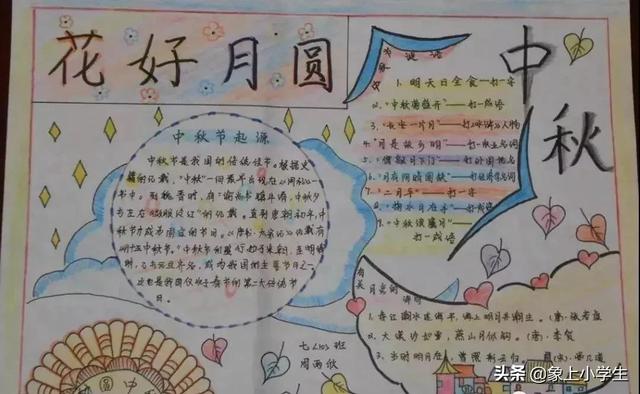 花好月圆
中秋
中秋节起源
中秋节是我国的传统佳节。根据史
籍的记载，“中秋”一词最早出现在《周礼》一
书中。到魏晋时，有“谕尚书镇牛渚，中秋夕
与左右微服泛江”的记载。直到唐朝初年，中
秋节才成为固定的节日。
中秋节的盛行始于宋朝，至明清
时，已与元旦齐名，成为我国的主要节日之一
这也是我国仅次于春节的第二大传统节
日。
谜语
1、明天日全食——打一字
2、“中秋菊盛开”——打一成语
3、“长安一片月”——打《水浒》人物
4、“月是故乡明”——打一
5、“僧敲月下门”——打外国地名
6、“月有阴晴圆缺”——打经济学名词
7、“二月平”——打一字
8、“掬水月在手”——打
9、“中秋
打一成语
有关月亮的
1、春江潮水连海平，海上明月共潮生。（唐）张若虚
2、大漠沙如雪，燕山月似钩。（唐）李贺
3、当时明月在，曾照彩云归。
七（10）班
圆 中
头条 @象上小学生